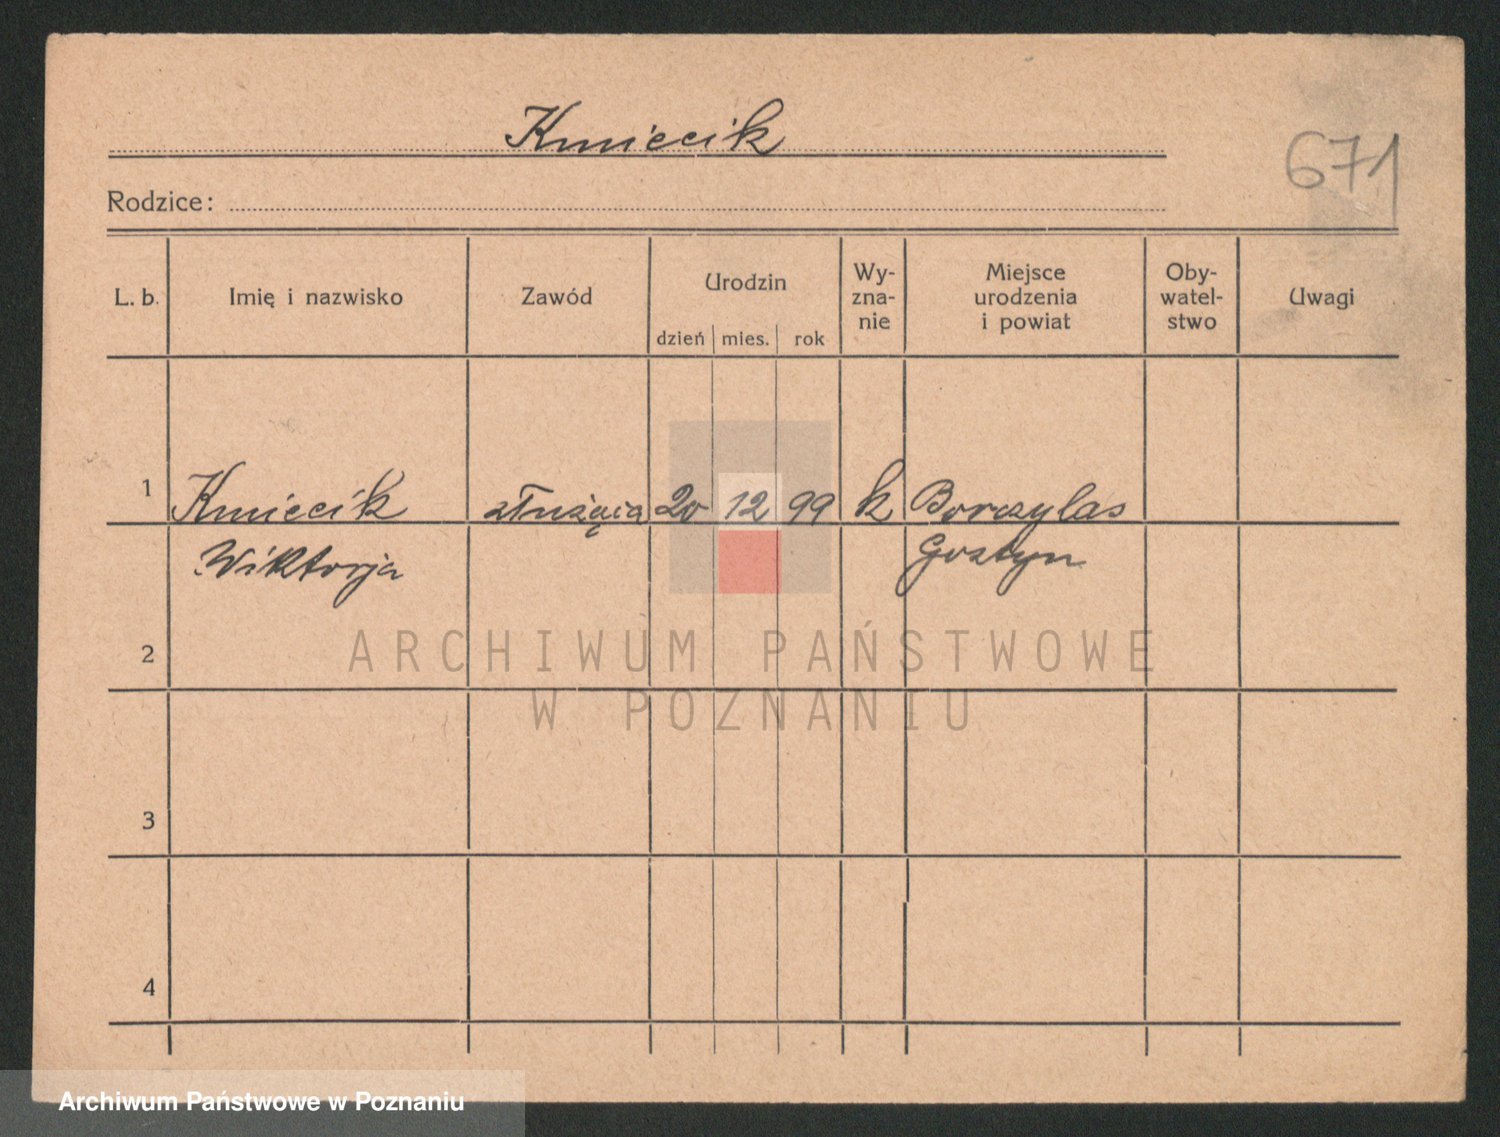 Kmiecik
671
Rodzice:
L. b. Imię i nazwisko Zawód Urodzin dzień mies. rok Wy-zna-nie Miejsce urodzenia i powiat Oby-watel-stwo Uwagi
1 Kmiecik służąca 20 12 99 k
Wiktorja Gostyn
2
ARCHIWUM PAŃSTWOWE
W POZNANIU
3
4
Archiwum Państwowe w Poznaniu